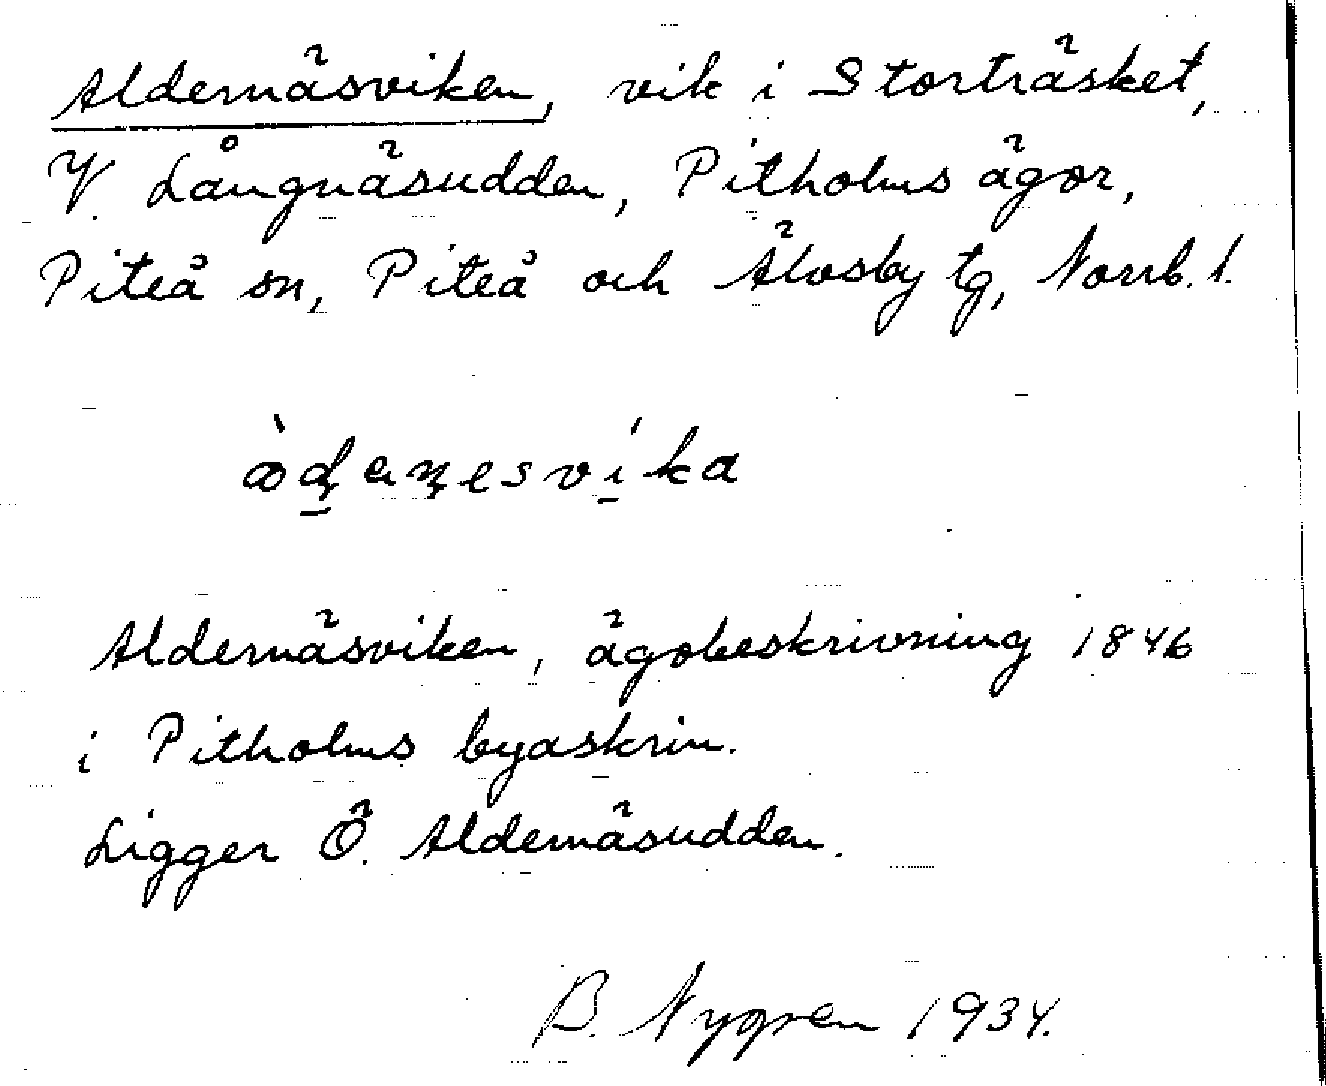 Aldernäsviken, vik i Storträsket,
V. Långnäsudden, Pitholms ägor,
Piteå sn, Piteå och Älvsby tg, Norrb. l.
Aldernäsviken, ägobeskrivning 1846
i Pitholms byaskrin.
Ligger Ö. Aldernäsudden.
B. Nygren 1934.